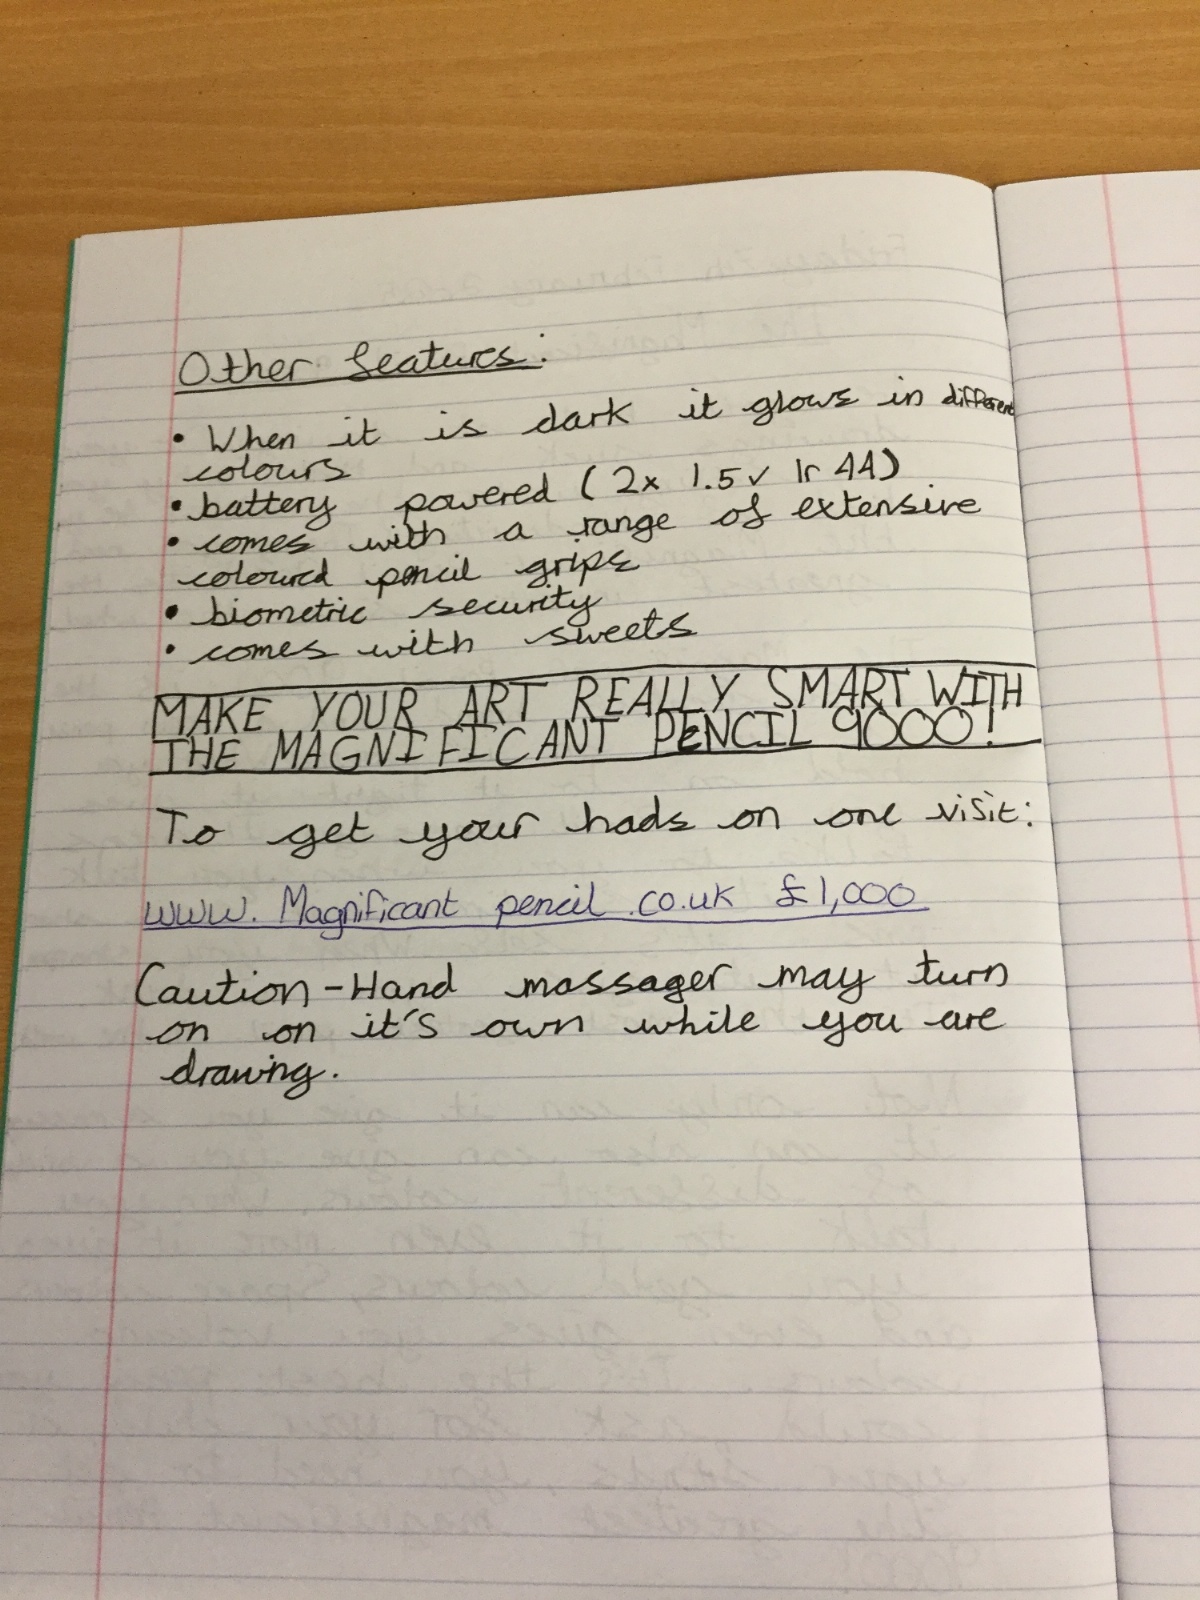 Other features:
• When it is dark it glows in different
colours
• battery powered (2x 1.5v lr 44)
• comes with a range of extensive
coloured pencil grips
• biometric security
• comes with sweets
MAKE YOUR ART REALLY SMART WITH
THE MAGNIFICANT PENCIL 9000!
To get your hads on one visit:
www. Magnificant pencil .co.uk £1,000
Caution-Hand massager may turn
on on it's own while you are
drawing.